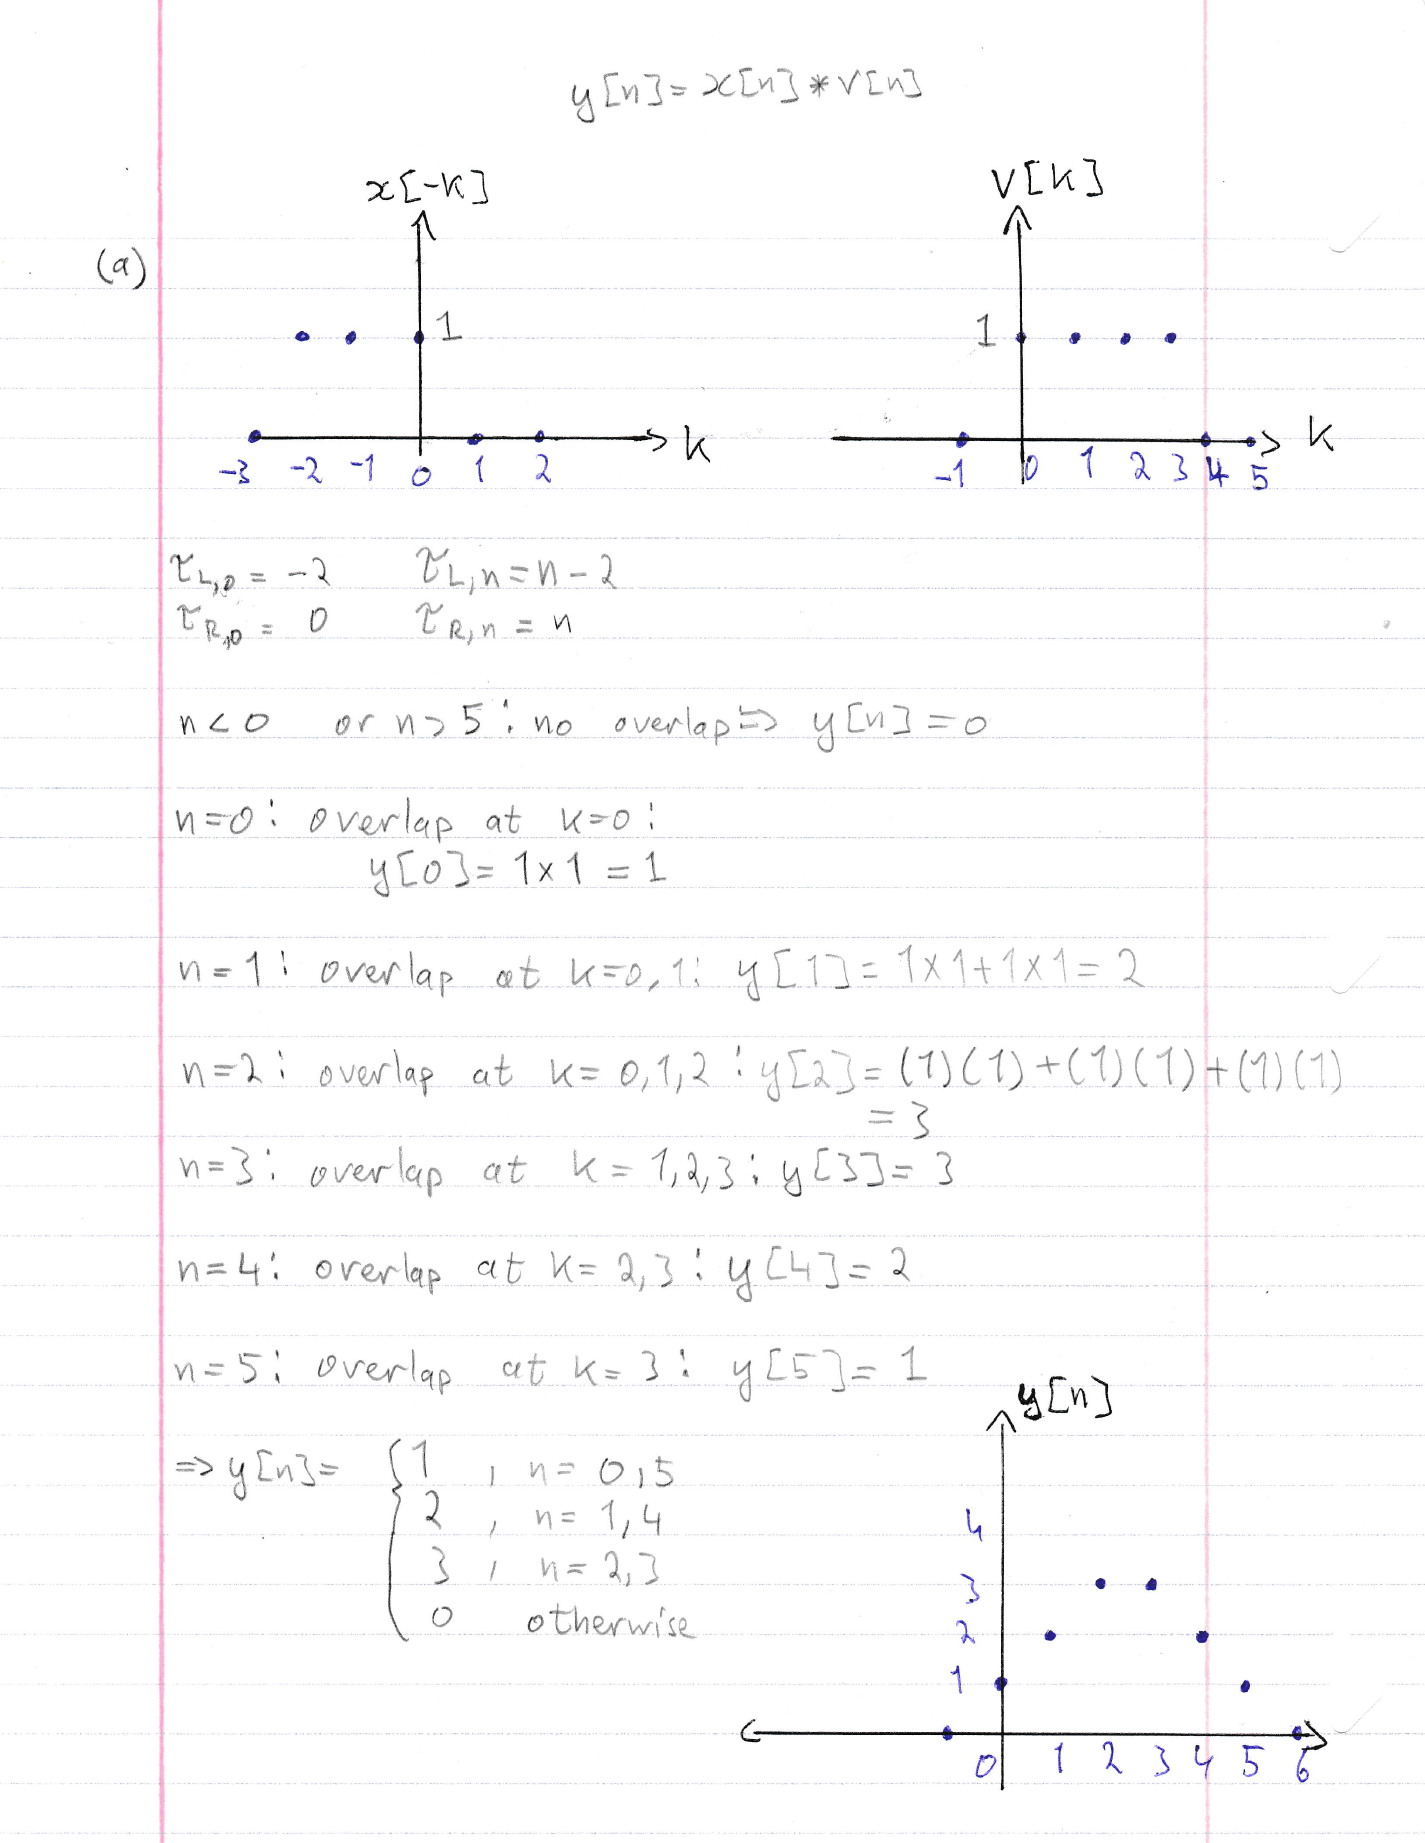 y[n]=x[n]*v[n]
x[-k]
v[k]
(a)
1
1
k
k
-3 -2 -1 0 1 2
-1 0 1 2 3 4 5
τL,0 = -2 τL,n = n-2
τR,0 = 0 τR,n = n
n<0 or n>5: no overlap => y[n]=0
n=0: overlap at k=0:
y[0]= 1x1 = 1
n=1: overlap at k=0,1: y[1]= 1x1+1x1= 2
n=2: overlap at k= 0,1,2: y[2]= (1)(1)+(1)(1)+(1)(1)
= 3
n=3: overlap at k= 1,2,3: y[3]= 3
n=4: overlap at k= 2,3: y[4]= 2
n=5: overlap at k= 3: y[5]= 1
y[n]
=> y[n]= { 1 , n= 0,5
2 , n= 1,4
3 , n= 2,3
0 otherwise
4
3
2
1
0 1 2 3 4 5 6